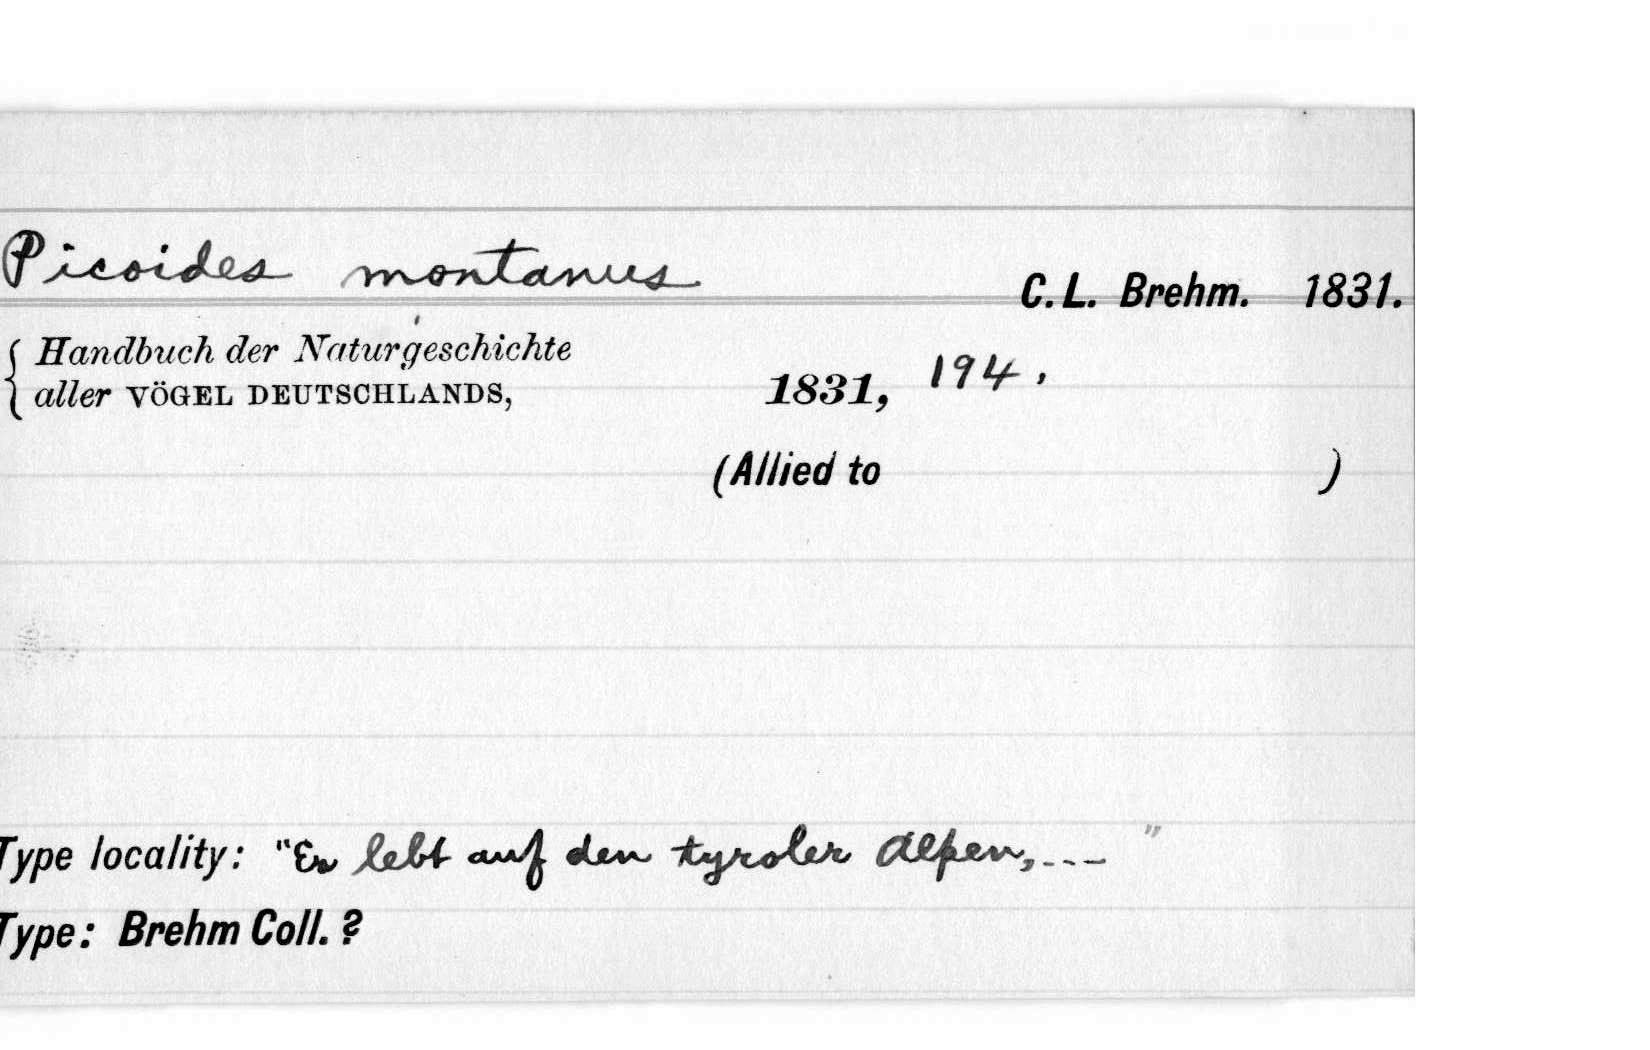 Picoides montanus
C. L. Brehm. 1831.
Handbuch der Naturgeschichte
aller VÖGEL DEUTSCHLANDS, 1831, 194.
(Allied to )
Type locality: "Er lebt auf den tyroler Alpen,--- "
Type: Brehm Coll. ?